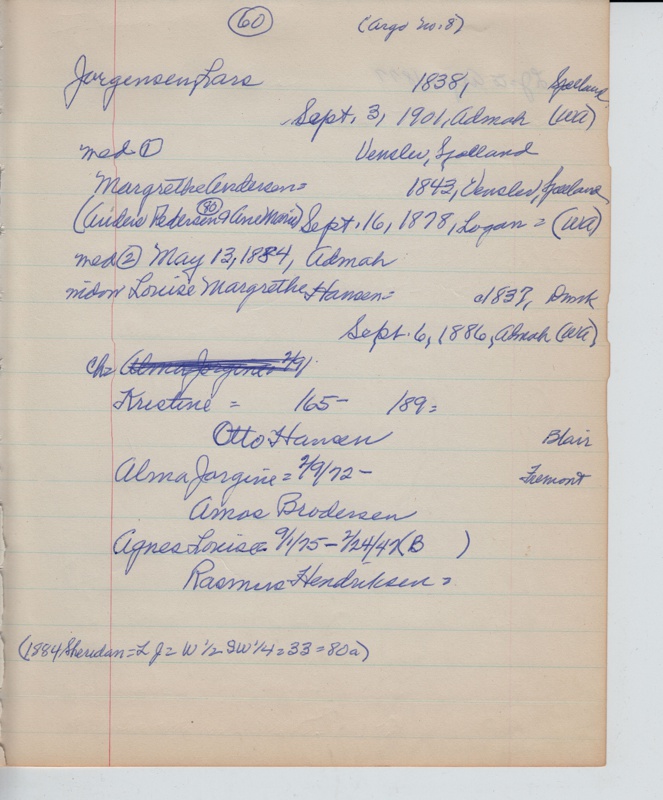 60 (Argo no. 8)
Jorgensen, Lars 1838, Sjelland
Sept. 3, 1901, Admah (WA)
med ① Venslev, Sjelland
Margrethe Andersen = 1843, Venslev, Sjelland
(Anders Pedersen 80 & Ane Marie) Sept. 16, 1878, Logan = (WA)
med ② May 13, 1884, Admah
widow Louise Margrethe Hansen = c1837, Dmk
Sept. 6, 1886, Admah (WA)
ch = Alma Jorgine = 2/9/
Kristine = 165 - 189 =
Otto Hansen Blair
Alma Jorgine = 2/9/72 - Fremont
Amos Brodersen
Agnes Louise = 9/1/75 - 2/24/42 (B )
Rasmus Hendriksen =
(1884 Sheridan = L J = W 1/2 SW 1/4 = 33 = 80a)